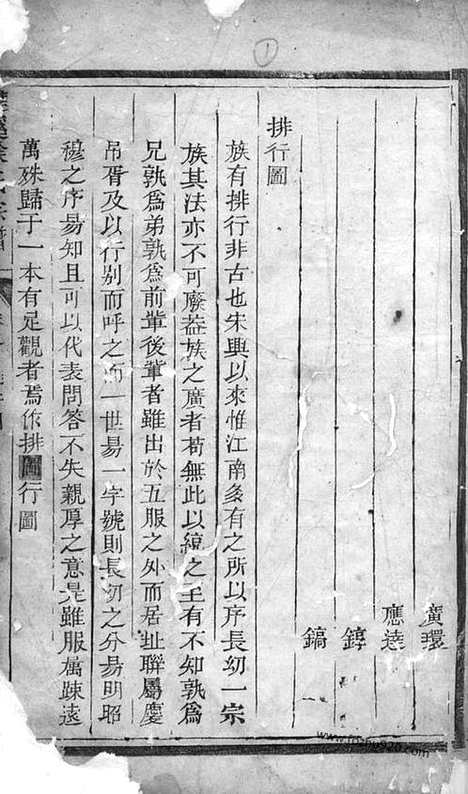 廣環
應達
錞
鎬
排行圖
族有排行非古也宋興以來惟江南多有之所以序長幼一宗
族其法亦不可廢蓋族之廣者苟無此以統之至有不知孰為
兄孰為弟孰為前輩後輩者雖出於五服之外而居址聯屬慶
吊胥及以行别而呼之而一世易一字號則長幼之分易明昭
穆之序易知且可以代表問答不失親厚之意是雖服屬踈遠
萬殊歸于一本有足觀者焉作排圖行圖
1